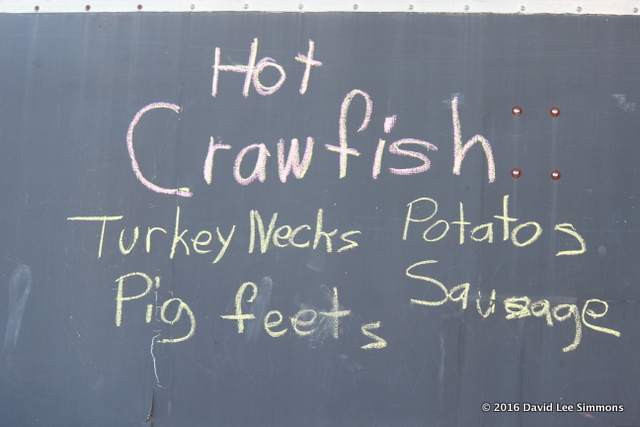 Hot
Crawfish
Turkey Necks Potatos
Pig feets Sausage
© 2016 David Lee Simmons